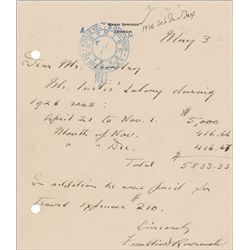 WARM SPRINGS
GEORGIA
1926
May 3 -
Dear Mr.
Mr. Curtis' Salary during
1926 was:
April 21 to Nov. 1. $5,000
Month of Nov. 416.66
" " Dec. 416.67
Total $5833.33
In addition he was paid for
travel expenses $210.
Sincerely
Franklin D Roosevelt